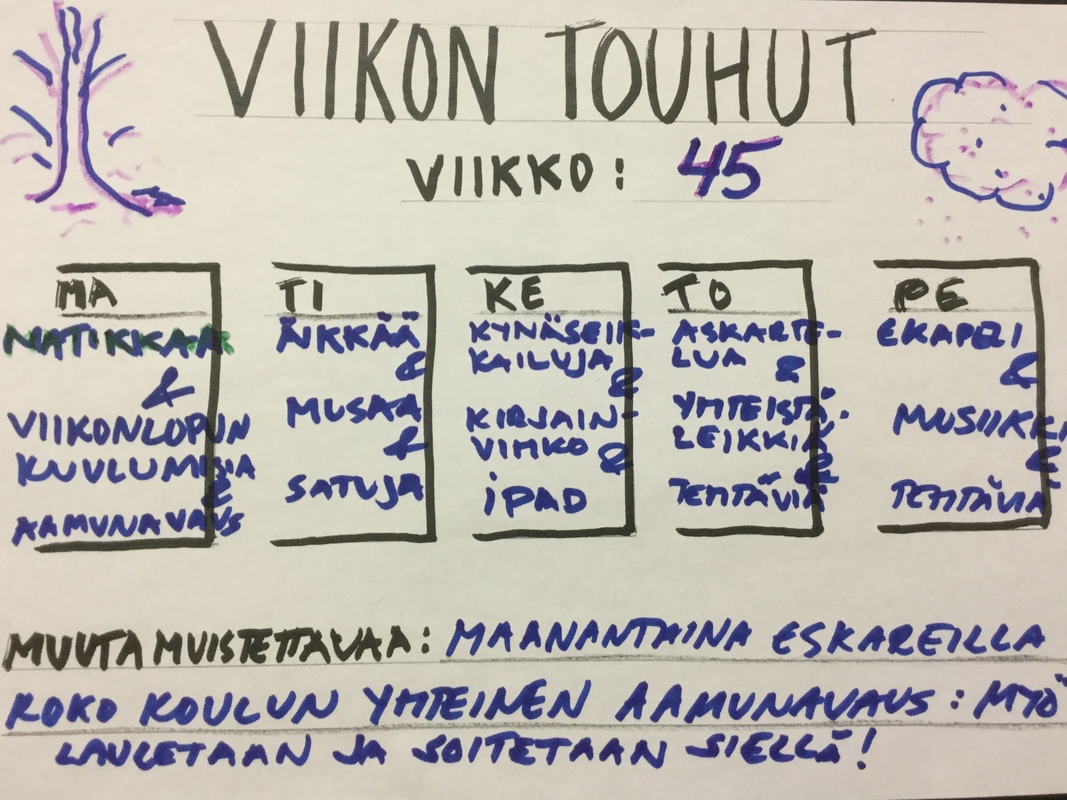 VIIKON TOUHUT
VIIKKO: 45
MA
MATIKKAA
&
VIIKONLOPUN
KUULUMISIA
&
AAMUNAVAUS
TI
ÄIKKÄÄ
&
MUSAA
&
SATUJA
KE
KYNÄSEIK-
KAILUJA
&
KIRJAIN-
VIHKO &
iPAD
TO
ASKARTE-
LUA &
YHTEISTÄ-
LEIKKIÄ
&
TEHTÄVIÄ
PE
EKAPELI
&
MUSIIKKI
&
TEHTÄVIÄ
MUUTA MUISTETTAVAA: MAANANTAINA ESKAREILLA
KOKO KOULUN YHTEINEN AAMUNAVAUS: MYÖ
LAULETAAN JA SOITETAAN SIELLÄ!